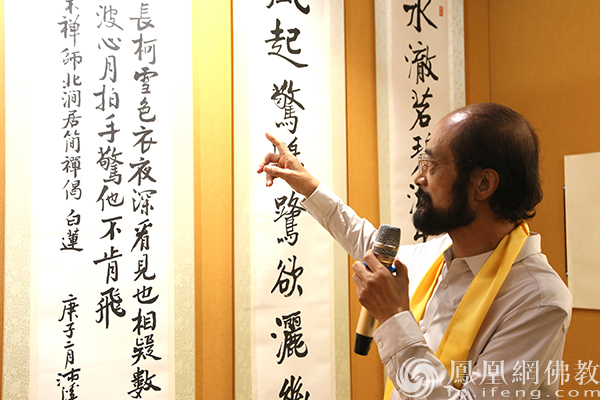 水澈
起驚鷺欲灑
長柯雪色衣夜深看見也相疑數
波心月拍手驚他不肯飛
宋禪師北澗居簡禪偈 白蓮 庚子二月沛
鳳凰網佛教
fo.ifeng.com